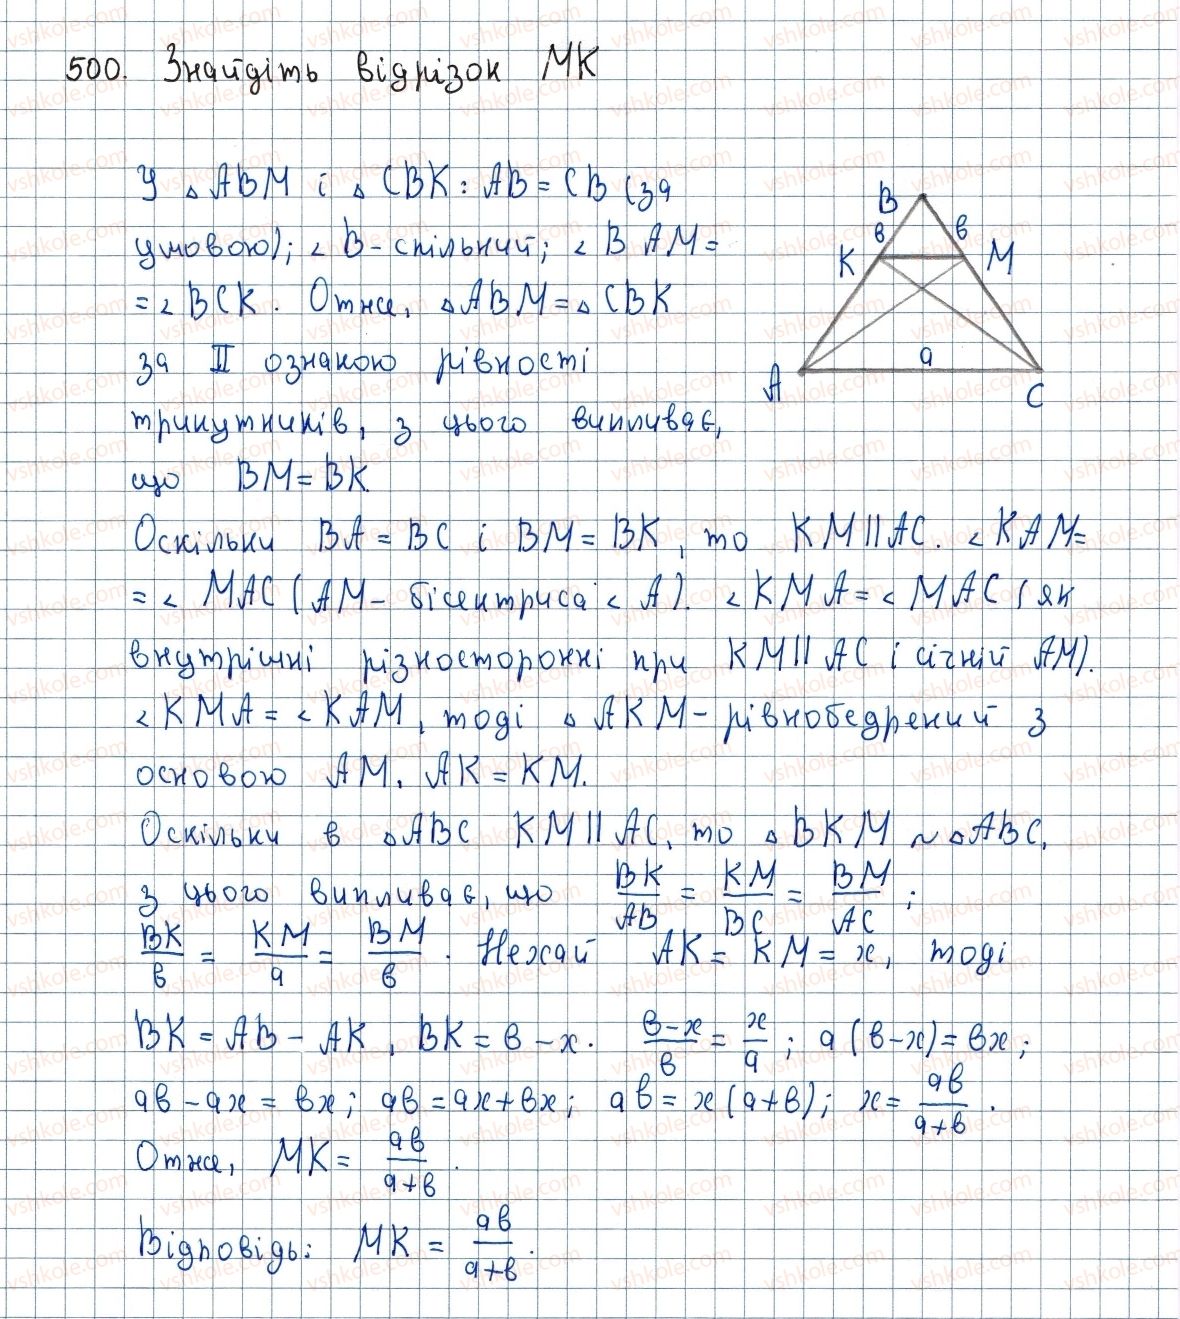 500. Знайдіть відрізок МК
У △ABM і △CBK: AB = CB (за
умовою); ∠B - спільний; ∠BAM =
= ∠BCK. Отже, △ABM = △CBK
за II ознакою рівності
трикутників, з цього випливає,
що BM = BK.
B
K
в
в
M
A
a
C
Оскільки BA = BC і BM = BK, то KM || AC. ∠KAM =
= ∠MAC (AM - бісектриса ∠A). ∠KMA = ∠MAC (як
внутрішні різносторонні при KM || AC і січній AM).
∠KMA = ∠KAM, тоді △AKM - рівнобедрений з
основою AM. AK = KM.
Оскільки в △ABC KM || AC, то △BKM ~ △ABC,
з цього випливає, що BK/AB = KM/BC = BM/AC;
BK/в = KM/a = BM/в. Нехай AK = KM = x, тоді
BK = AB - AK, BK = в - x. (в-x)/в = x/a; a(в-x) = вx;
aв - ax = вx; aв = ax + вx; aв = x(a+в); x = aв/(a+в).
Отже, MK = aв/(a+в).
Відповідь: MK = aв/(a+в).